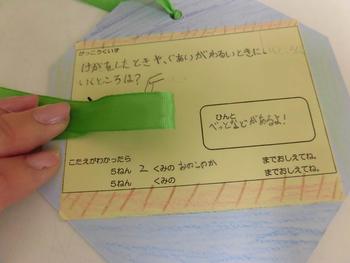 がっこうくいず
けがをしたときや、ぐあいがわるいときにい
いくところは?
ひんと
べっどなどがあるよ!
こたえがわかったら
5ねん 2 くみの おのの までおしえてね。
5ねん くみの までおしえてね。